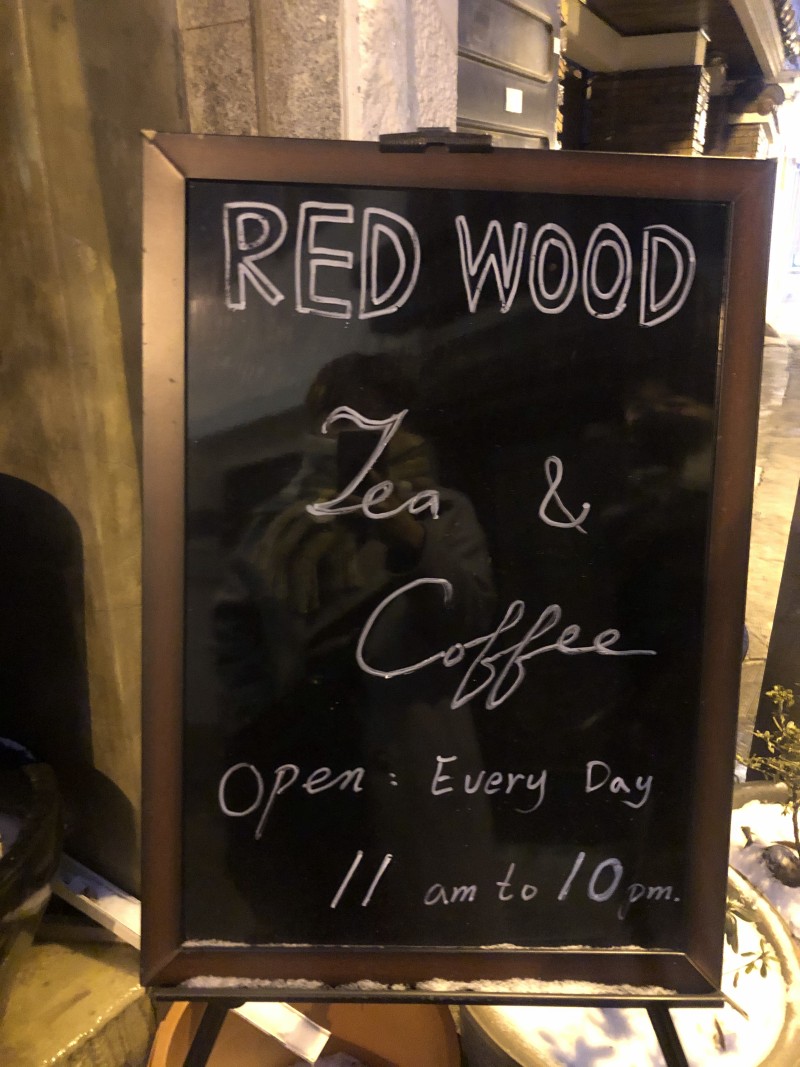 RED WOOD
Tea &
Coffee
Open: Every Day
11 am to 10 pm.